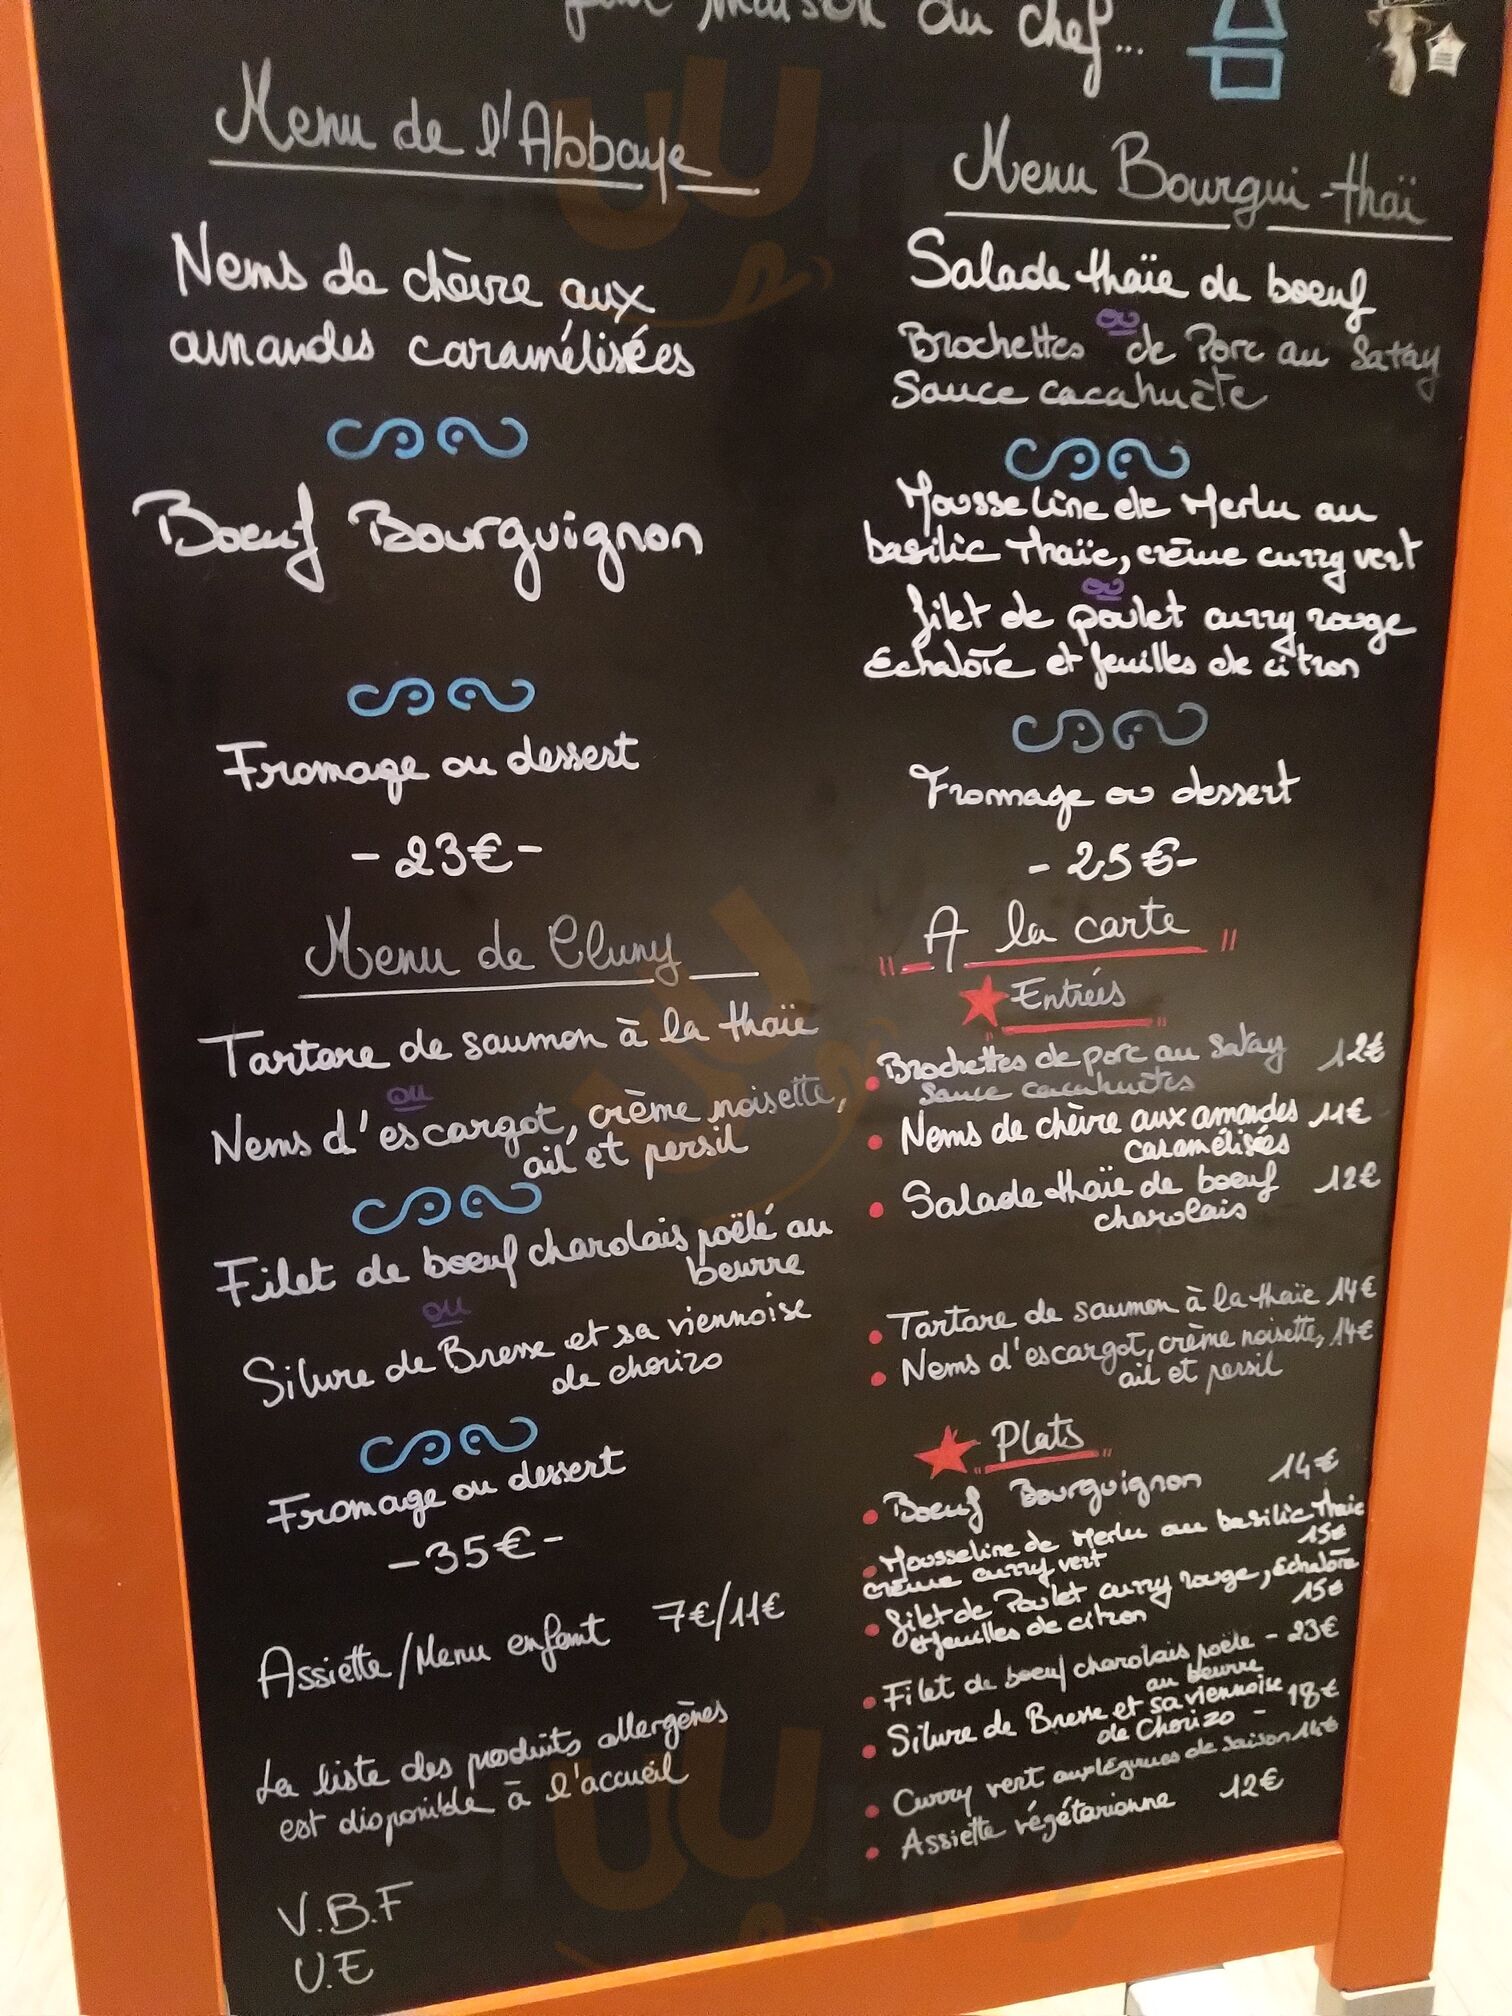 maison du chef...
Menu de l'Abbaye
Nems de chèvre aux
amandes caramélisées
Boeuf Bourguignon
Fromage ou dessert
-23€-
Menu de Cluny
Tartare de saumon à la thaïe
ou
Nems d'escargot, crème noisette,
ail et persil
Filet de boeuf charolais poëlé au
beurre
ou
Silure de Bresse et sa viennoise
de chorizo
Fromage ou dessert
-35€-
Assiette/Menu enfant 7€/11€
La liste des produits allergènes
est disponible à l'accueil
V.B.F
U.E
Menu Bourgui-thaï
Salade thaïe de boeuf
ou
Brochettes de Porc au Satay
Sauce cacahuète
Mousseline de Merlu au
basilic Thaïe, crème curry vert
ou
filet de poulet curry rouge
Echalote et feuilles de citron
Fromage ou dessert
-25€-
A la carte
Entrées
Brochettes de porc au Satay 12€
Sauce cacahuètes
Nems de chèvre aux amandes 11€
caramélisées
Salade thaïe de boeuf 12€
charolais
Tartare de saumon à la thaïe 14€
Nems d'escargot, crème noisette, 14€
ail et persil
Plats
Boeuf Bourguignon 14€
Mousseline de Merlu au basilic Thaie
crème curry vert 15€
filet de Poulet curry rouge, Echalote
et feuilles de citron 15€
Filet de boeuf charolais poële - 23€
au beurre
Silure de Bresse et sa viennoise
de Chorizo - 18€
Curry vert aux légumes de saison 14€
Assiette végétarienne 12€